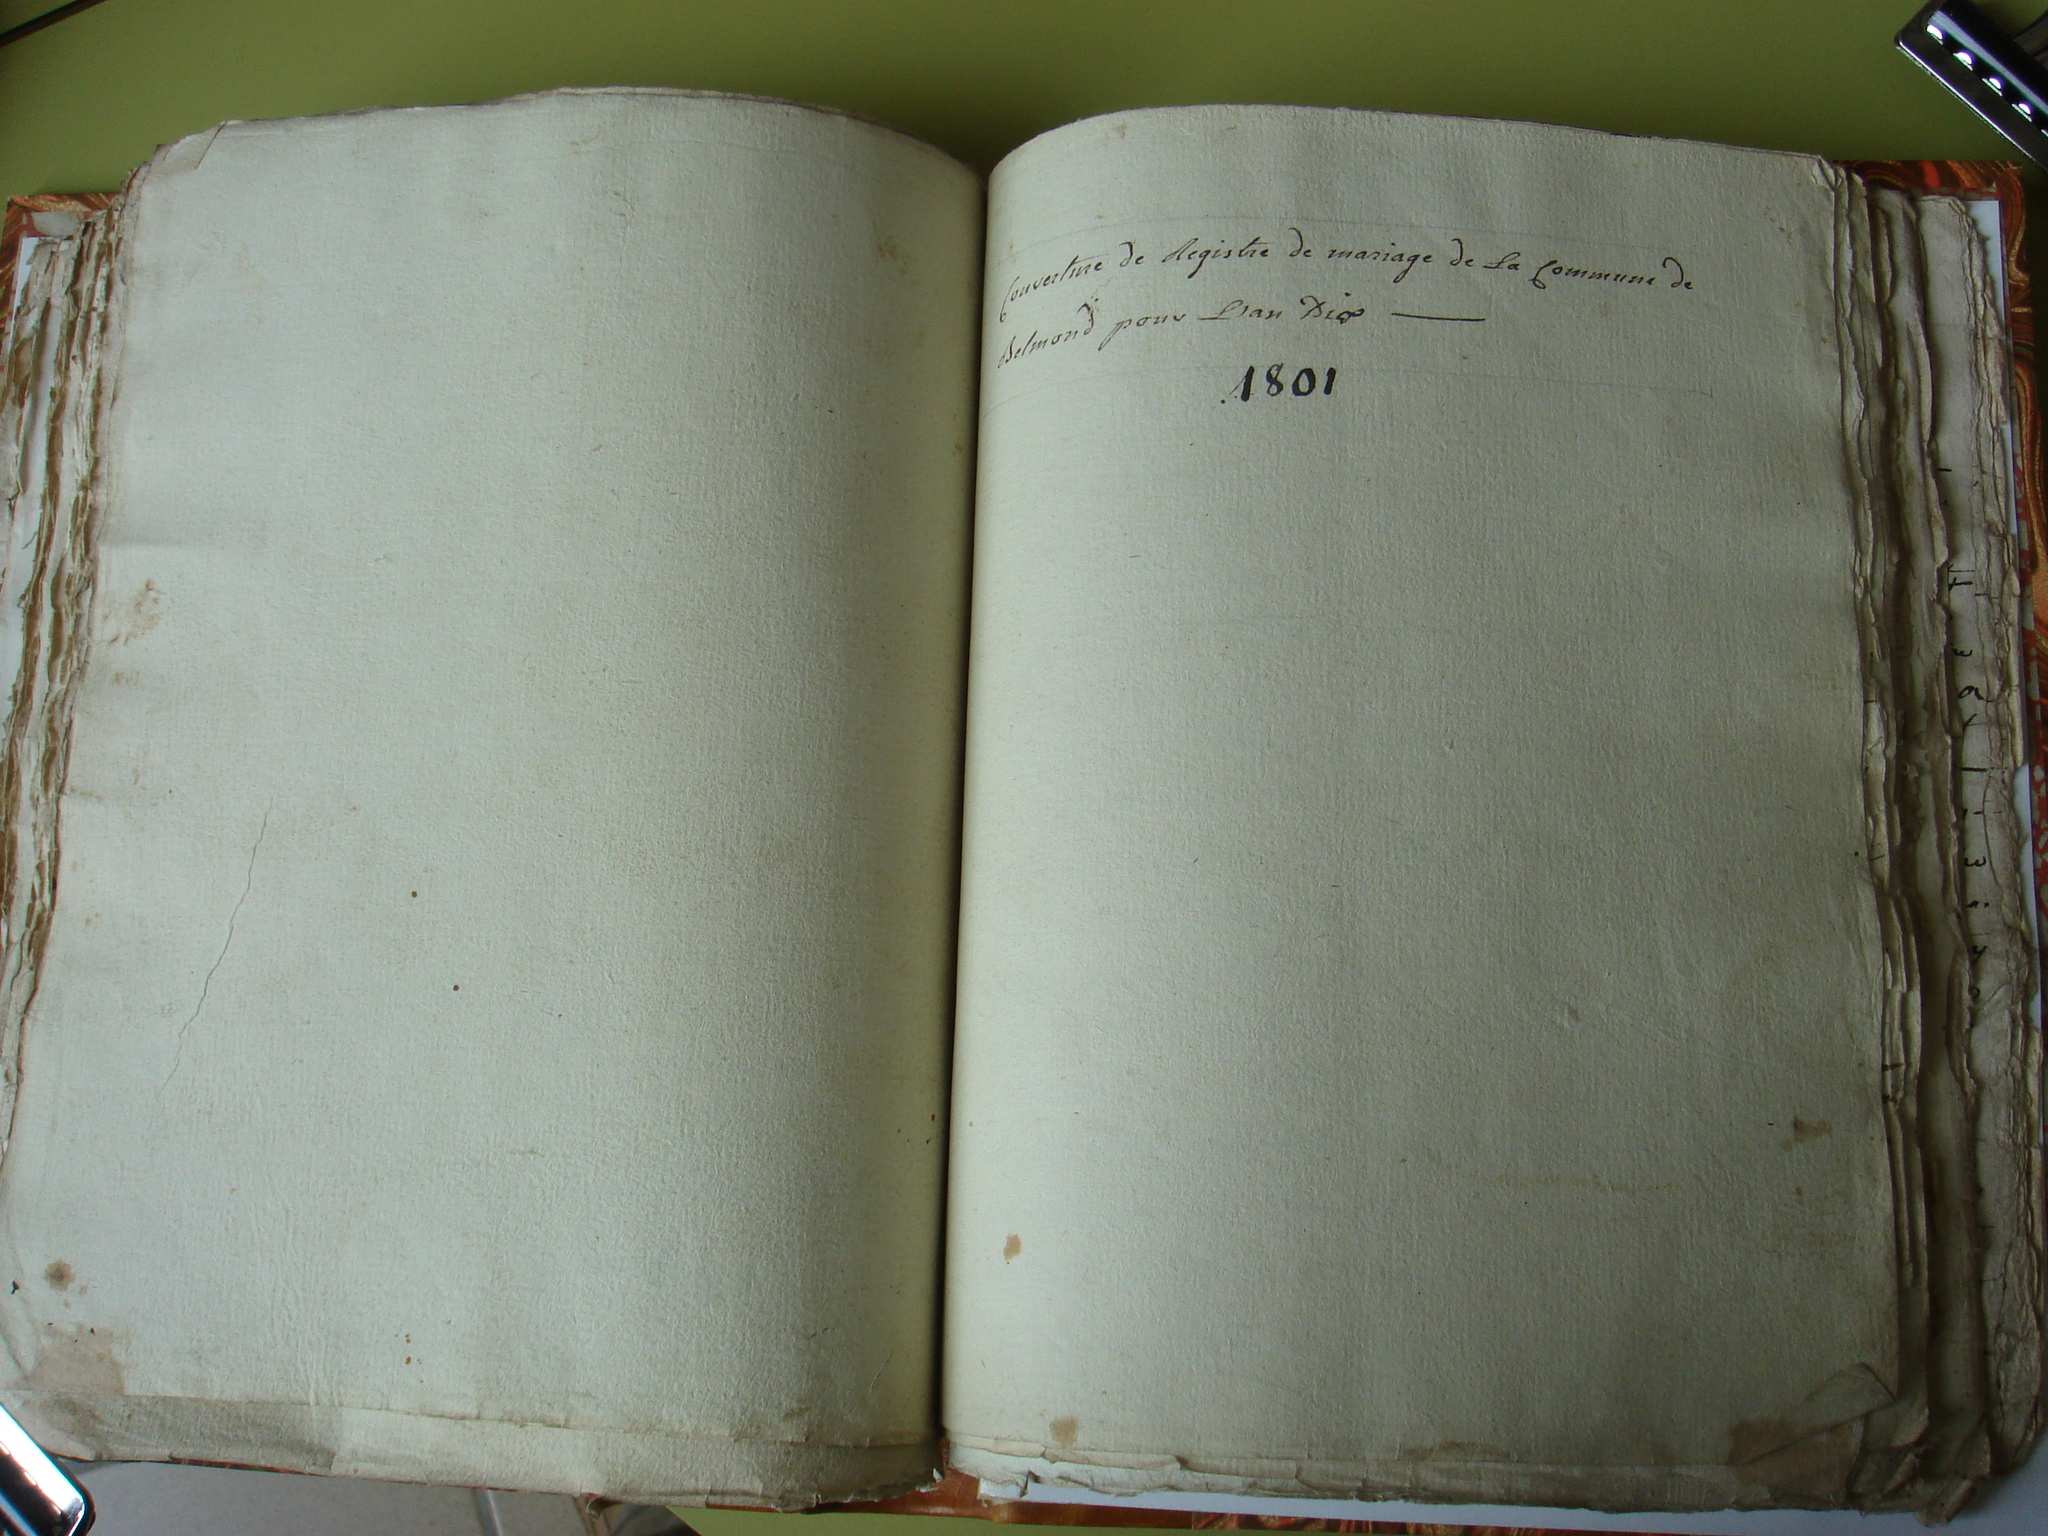 Couverture de Registre de mariage de La Commune de
Belmond pour L'an Dix
1801